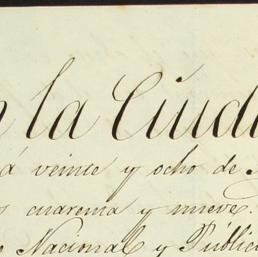 n la Ciud
á veinte y ocho de
s cuarenta y nueve.
Nacional y Públic